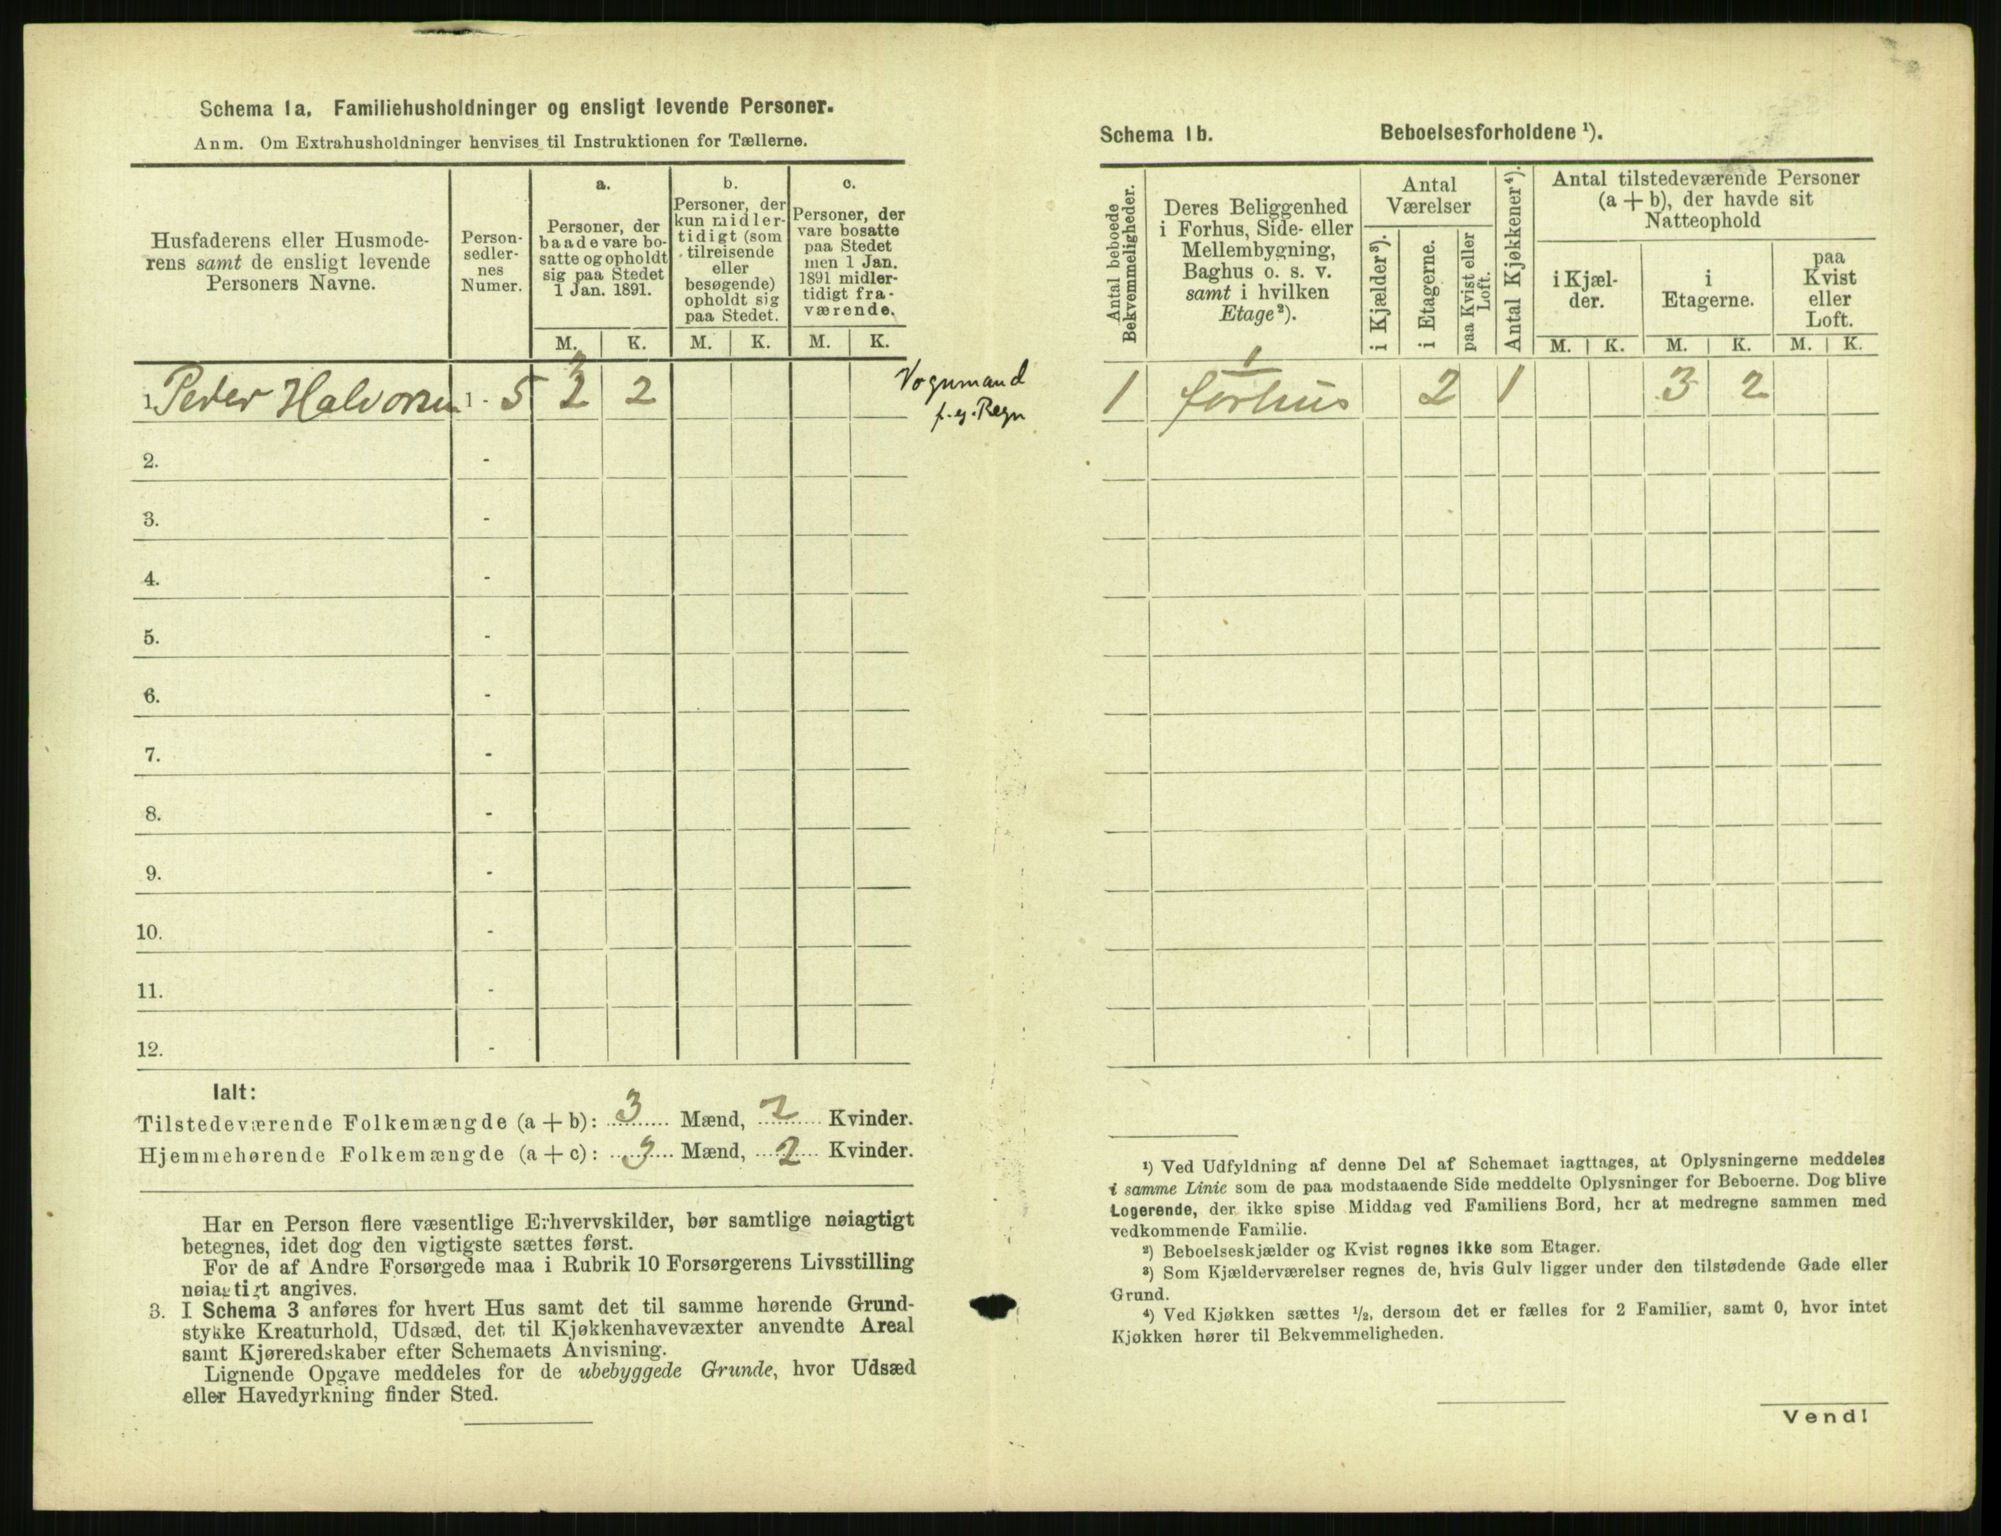 Schema 1a. Familiehusholdninger og ensligt levende Personer.
Anm. Om Extrahusholdninger henvises til Instruktionen for Tællerne.
Husfaderens eller Husmode-
rens samt de ensligt levende
Personers Navne.
Person-
sedler-
nes
Numer.
a.
Personer, der
baade vare bo-
satte og opholdt
sig paa Stedet
1 Jan. 1891.
b.
Personer, der
kun midler-
tidigt (som
tilreisende
eller
besøgende)
opholdt sig
paa Stedet.
c.
Personer, der
vare bosatte
paa Stedet
men 1 Jan.
1891 midler-
tidigt fra-
værende.
M. K. M. K. M. K.
3
1. Peder Halvorsen 1 - 5 2 2
Vognmand
f. e. Regn
2. -
3. -
4. -
5. -
6. -
7. -
8. -
9. -
10. -
11. -
12. -
Ialt:
Tilstedeværende Folkemængde (a + b): 3 Mænd, 2 Kvinder.
Hjemmehørende Folkemængde (a + c): 3 Mænd, 2 Kvinder.
Har en Person flere væsentlige Erhvervskilder, bør samtlige nøiagtigt
betegnes, idet dog den vigtigste sættes først.
For de af Andre Forsørgede maa i Rubrik 10 Forsørgerens Livsstilling
nøiagtigt angives.
3. I Schema 3 anføres for hvert Hus samt det til samme hørende Grund-
stykke Kreaturhold, Udsæd, det til Kjøkkenhavevæxter anvendte Areal
samt Kjøreredskaber efter Schemaets Anvisning.
Lignende Opgave meddeles for de ubebyggede Grunde, hvor Udsæd
eller Havedyrkning finder Sted.
Schema 1b. Beboelsesforholdene ¹).
Antal beboede
Bekvemmeligheder.
Deres Beliggenhed
i Forhus, Side- eller
Mellembygning,
Baghus o. s. v.
samt i hvilken
Etage²).
Antal
Værelser
i Kjælder³).
i Etagerne.
paa Kvist eller
Loft.
Antal Kjøkkener⁴).
Antal tilstedeværende Personer
(a + b), der havde sit
Natteophold
i Kjæl-
der.
i
Etagerne.
paa
Kvist
eller
Loft.
M. K. M. K. M. K.
1
1 forhus 2 1 3 2
¹) Ved Udfyldning af denne Del af Schemaet iagttages, at Oplysningerne meddeles
i samme Linie som de paa modstaaende Side meddelte Oplysninger for Beboerne. Dog blive
Logerende, der ikke spise Middag ved Familiens Bord, her at medregne sammen med
vedkommende Familie.
²) Beboelseskjælder og Kvist regnes ikke som Etager.
³) Som Kjælderværelser regnes de, hvis Gulv ligger under den tilstødende Gade eller
Grund.
⁴) Ved Kjøkken sættes ½, dersom det er fælles for 2 Familier, samt 0, hvor intet
Kjøkken hører til Bekvemmeligheden.
Vend!